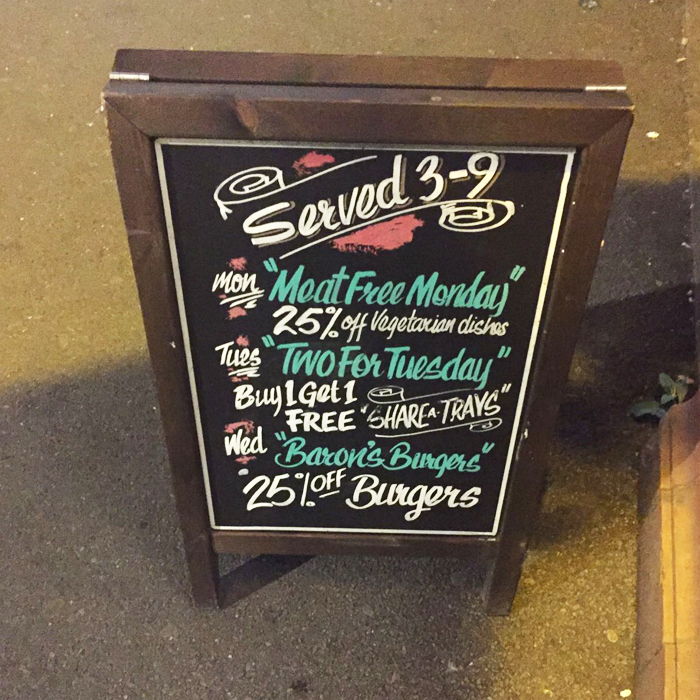 Served 3-9
Mon "Meat Free Monday"
25% off Vegetarian dishes
Tues "Two For Tuesday"
Buy 1 Get 1
FREE "SHARE-A-TRAYS"
Wed "Baron's Burgers"
25% OFF Burgers